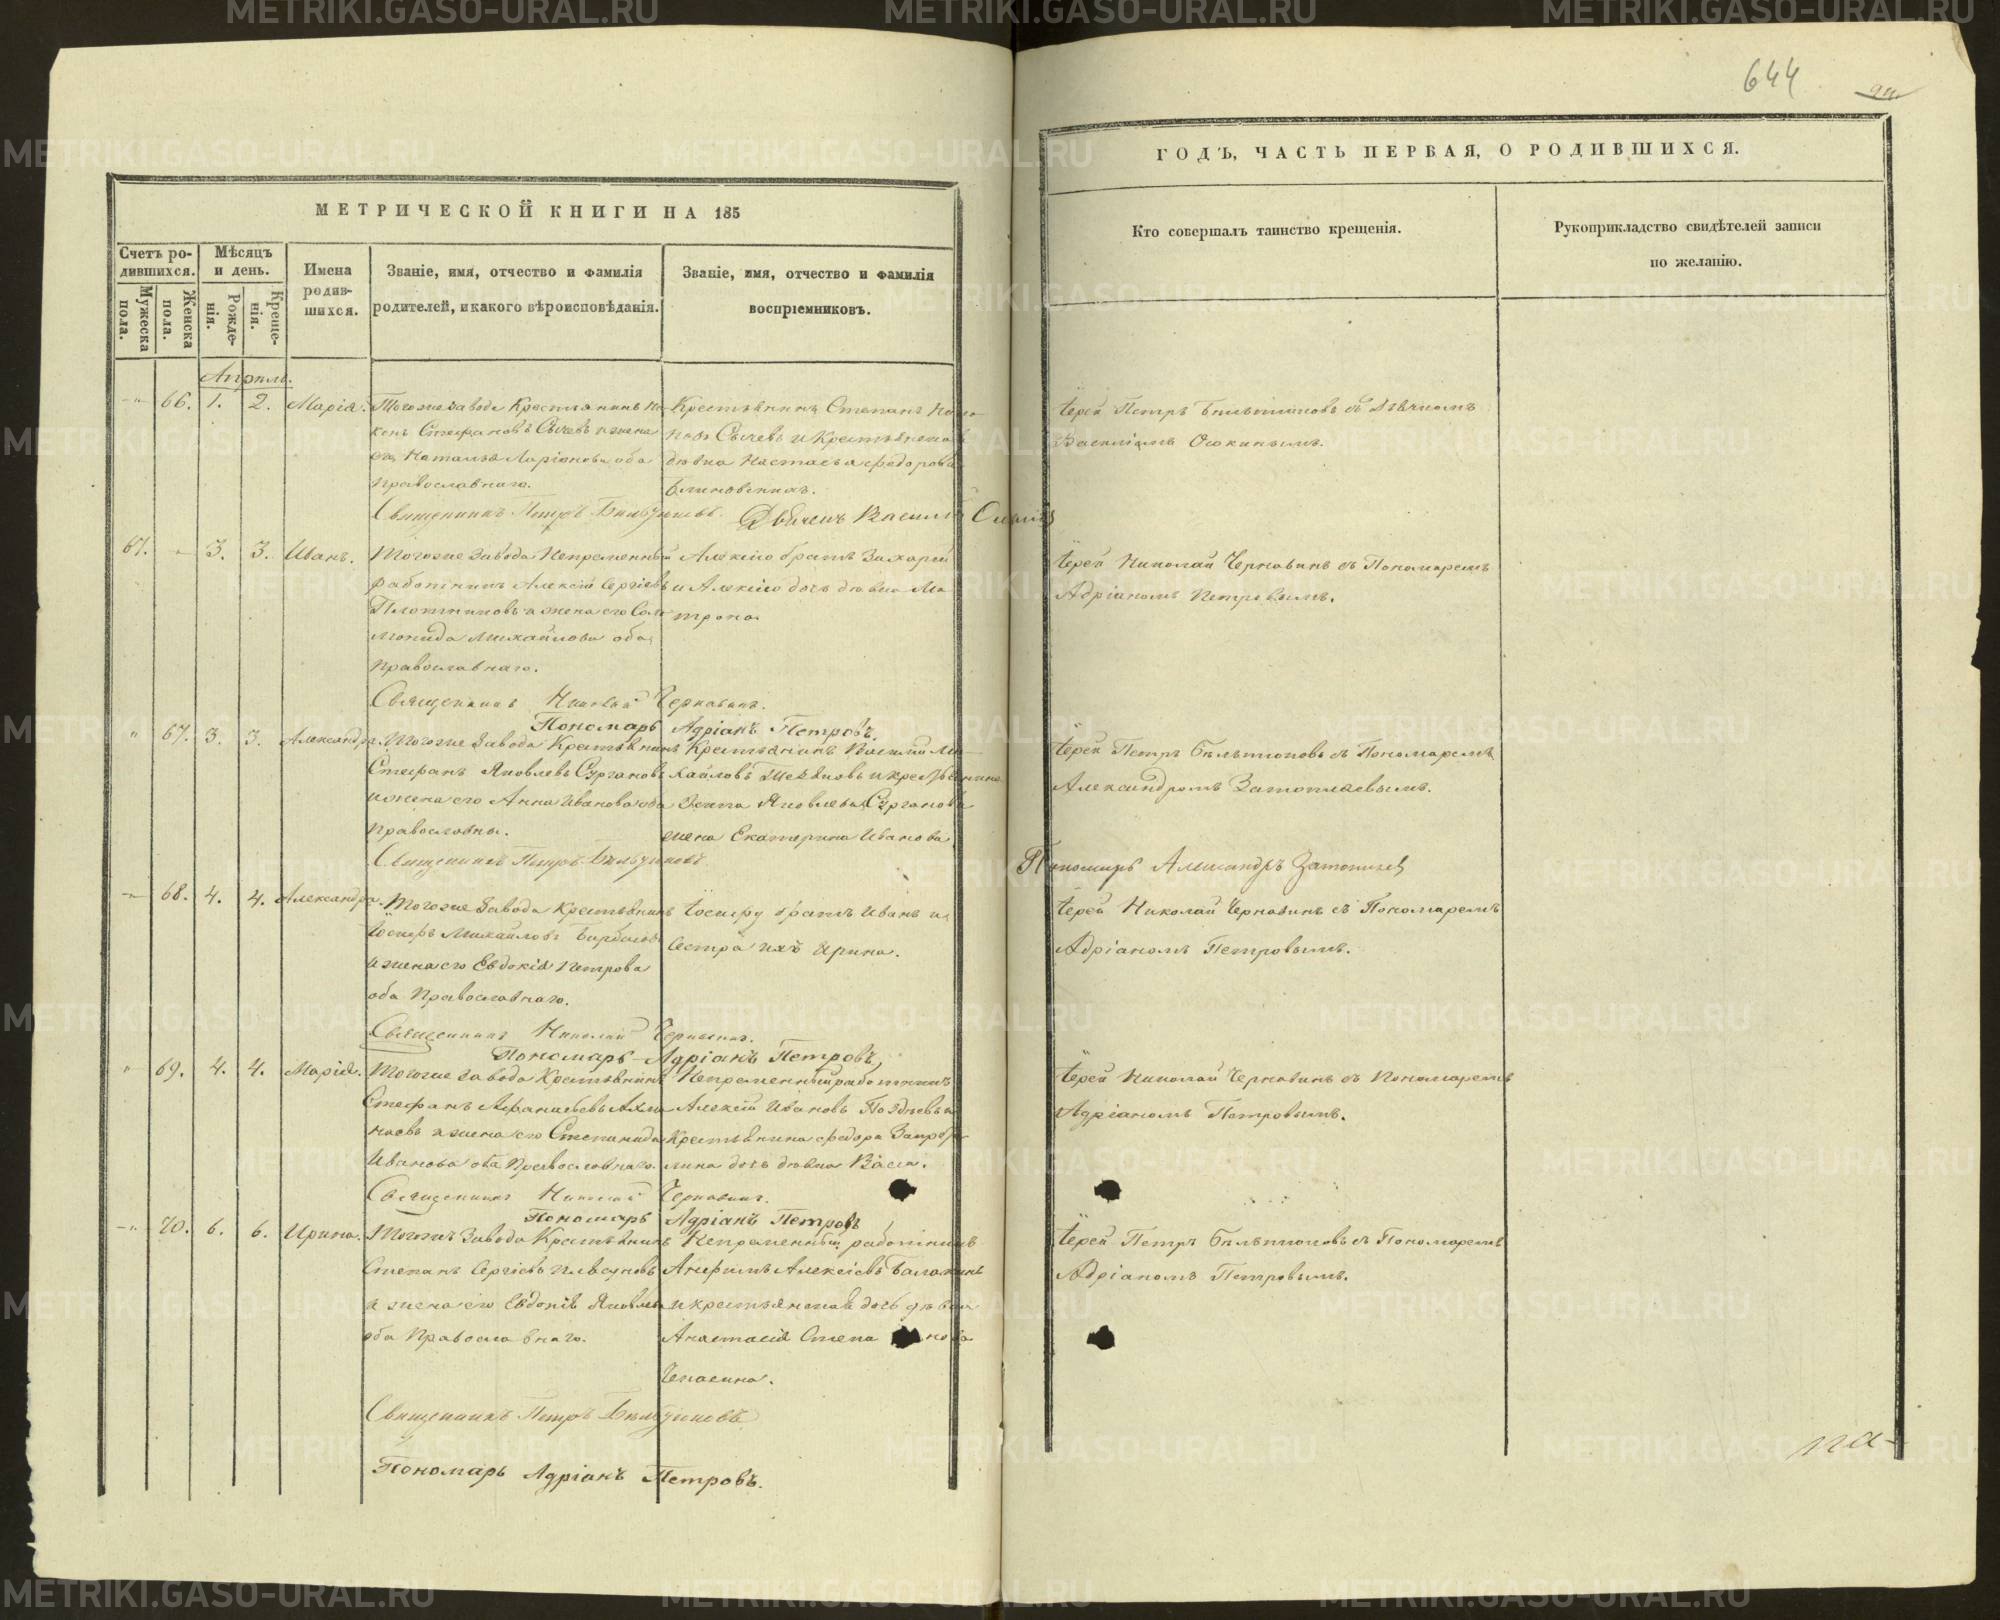 МЕТРИЧЕСКОЙ КНИГИ НА 185
Счетъ ро-
дившихся.
Мѣсяцъ
и день.
Имена
родив-
шихся.
Званіе, имя, отчество и фамилія
родителей, и какого вѣроисповѣданія.
Званіе, имя, отчество и фамилія
воспріемниковъ.
Мужеска
пола.
Женска
пола.
Рожде-
нія.
Креще-
нія.
Апрѣль.
66. 1. 2. Марія.
Тогоже завода Крестьянинъ Ни-
конъ Стефановъ Сычевъ и жена
его Наталья Ларіонова оба
православнаго.
Крестьянинъ Степанъ
Сычевъ и Крестьянская
дѣвка Настасья Федорова
Блиновскихъ.
Священникъ Петръ
Дьячекъ Василій
67. 3. 3. Иванъ.
Тогоже завода Непременный
работникъ Алексій Сергіевъ
Плотниковъ и жена его Соло
монида Михайлова оба
православнаго.
Алексію братъ Захарей
и Алексію дочь дѣвка Ма
трона
Священникъ Николай Чернавинъ.
Пономарь Адріанъ Петровъ.
67. 3. 3. Александра.
Тогоже завода Крестьянинъ
Стефанъ Яковлевъ Сургановъ
и жена его Анна Иванова оба
православны.
Крестьянинъ Василій Ми-
хайловъ и крестьянина
Яковлева Сурганова
жена Екатерина Иванова
Священникъ Петръ
68. 4. 4. Александра.
Тогоже завода Крестьянинъ
Іосифъ Михайловъ
и жена его Евдокія Петрова
оба православнаго.
Іосифу братъ Иванъ и
сестра ихъ Ирина.
Священникъ Николай Чернавинъ.
Пономарь Адріанъ Петровъ,
69. 4. 4. Марія.
Тогоже завода Крестьянинъ
Стефанъ
и жена его Степанида
Иванова оба православнаго.
Непременный работникъ
Алексій Ивановъ Поздѣевъ и
Крестьянина Федора
дочь дѣвка Васса.
Священникъ Николай Чернавинъ.
Пономарь Адріанъ Петровъ
70. 6. 6. Ирина.
Тогоже завода Крестьянинъ
Степанъ Сергіевъ
и жена его Евдокія Яковлева
оба православнаго.
Непременный работникъ
Анфимъ Алексіевъ
и крестьянская дочь дѣвка
Анастасія Степа нова
Священникъ Петръ
Пономарь Адріанъ Петровъ.
644
ГОДЪ, ЧАСТЬ ПЕРВАЯ, О РОДИВШИХСЯ.
Кто совершалъ таинство крещенія.
Рукоприкладство свидѣтелей записи
по желанію.
Іерей Петръ съ Дьячкомъ
Василіемъ
Іерей Николай Чернавинъ съ Пономаремъ
Адріаномъ Петровымъ.
Іерей Петръ съ Пономаремъ
Александромъ Затопляевымъ.
Пономарь Александръ Затопляев
Іерей Николай Чернавинъ съ Пономаремъ
Адріаномъ Петровымъ.
Іерей Николай Чернавинъ съ Пономаремъ
Адріаномъ Петровымъ.
Іерей Петръ съ Пономаремъ
Адріаномъ Петровымъ.
па-
METRIKI.GASO-URAL.RU